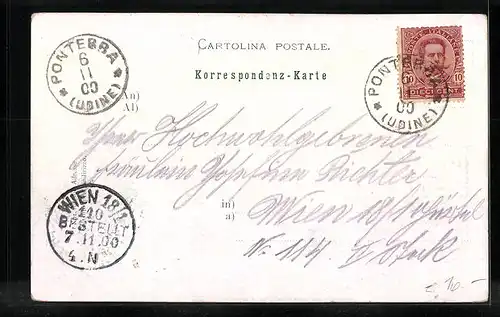 CARTOLINA POSTALE.
Korrespondenz-Karte
PONTEBBA
6
11
00
(UDINE)
POSTE ITALIANE
10 10
DIECI CENT.
PONTEBBA
00
(UDINE)
An)
Al)
Ihrer Hochwohlgeboren
Fräulein Richter
in)
a)
Wien 18/1
Nr. 114. I Stock
WIEN 18/1
BESTELLT
7.11.00
4.N